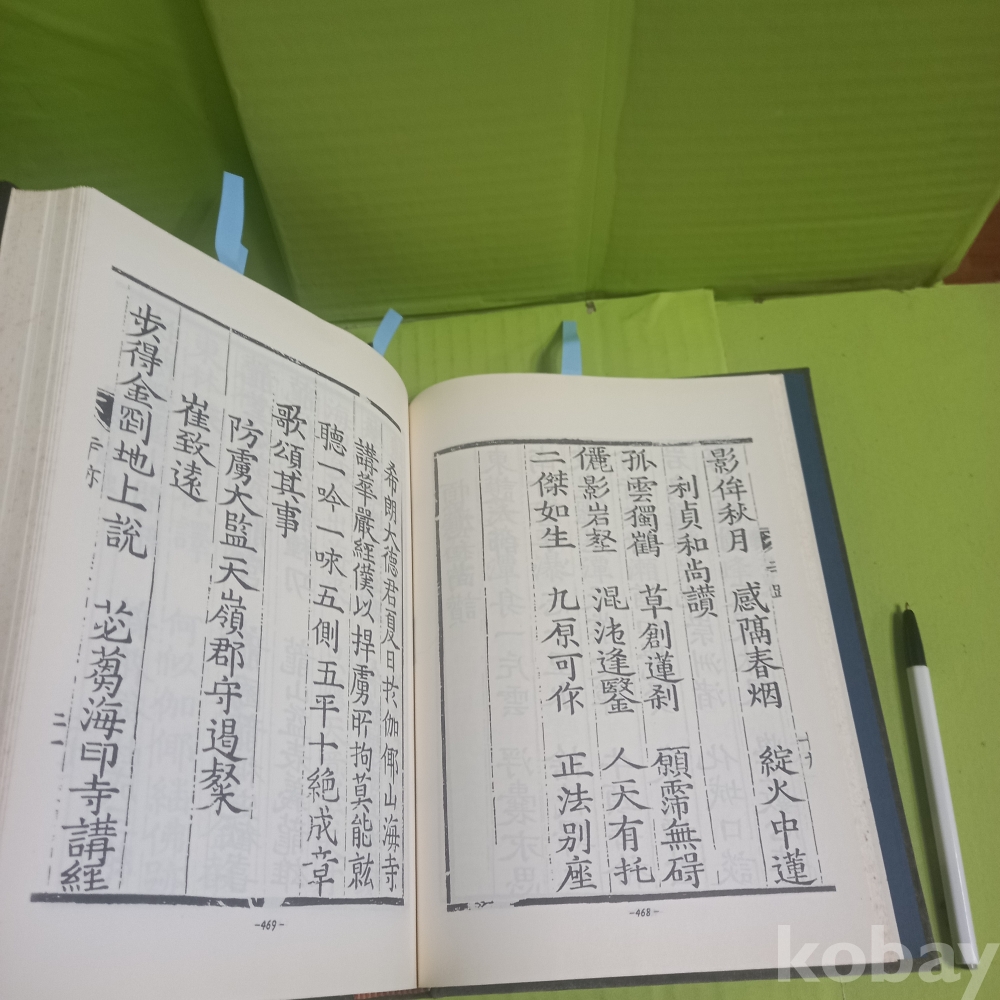 影侔秋月 感隔春烟 綻火中蓮
利貞和尚讃
孤雲獨鶴 草創蓮刹 願霈無碍
儷影岩壑 混沌逢鑿 人天有托
二傑如生 九原可作 正法別座
-468-
希朗大德君夏日扵伽倻山海寺
講華嚴經僕以捍虜所拘莫能就
聽一吟一咏五側五平十絶成章
歌頌其事
防虜太監天嶺郡守遏粲
崔致遠
步得金剛地上說 苾蒭海印寺講經
-469-
kobay